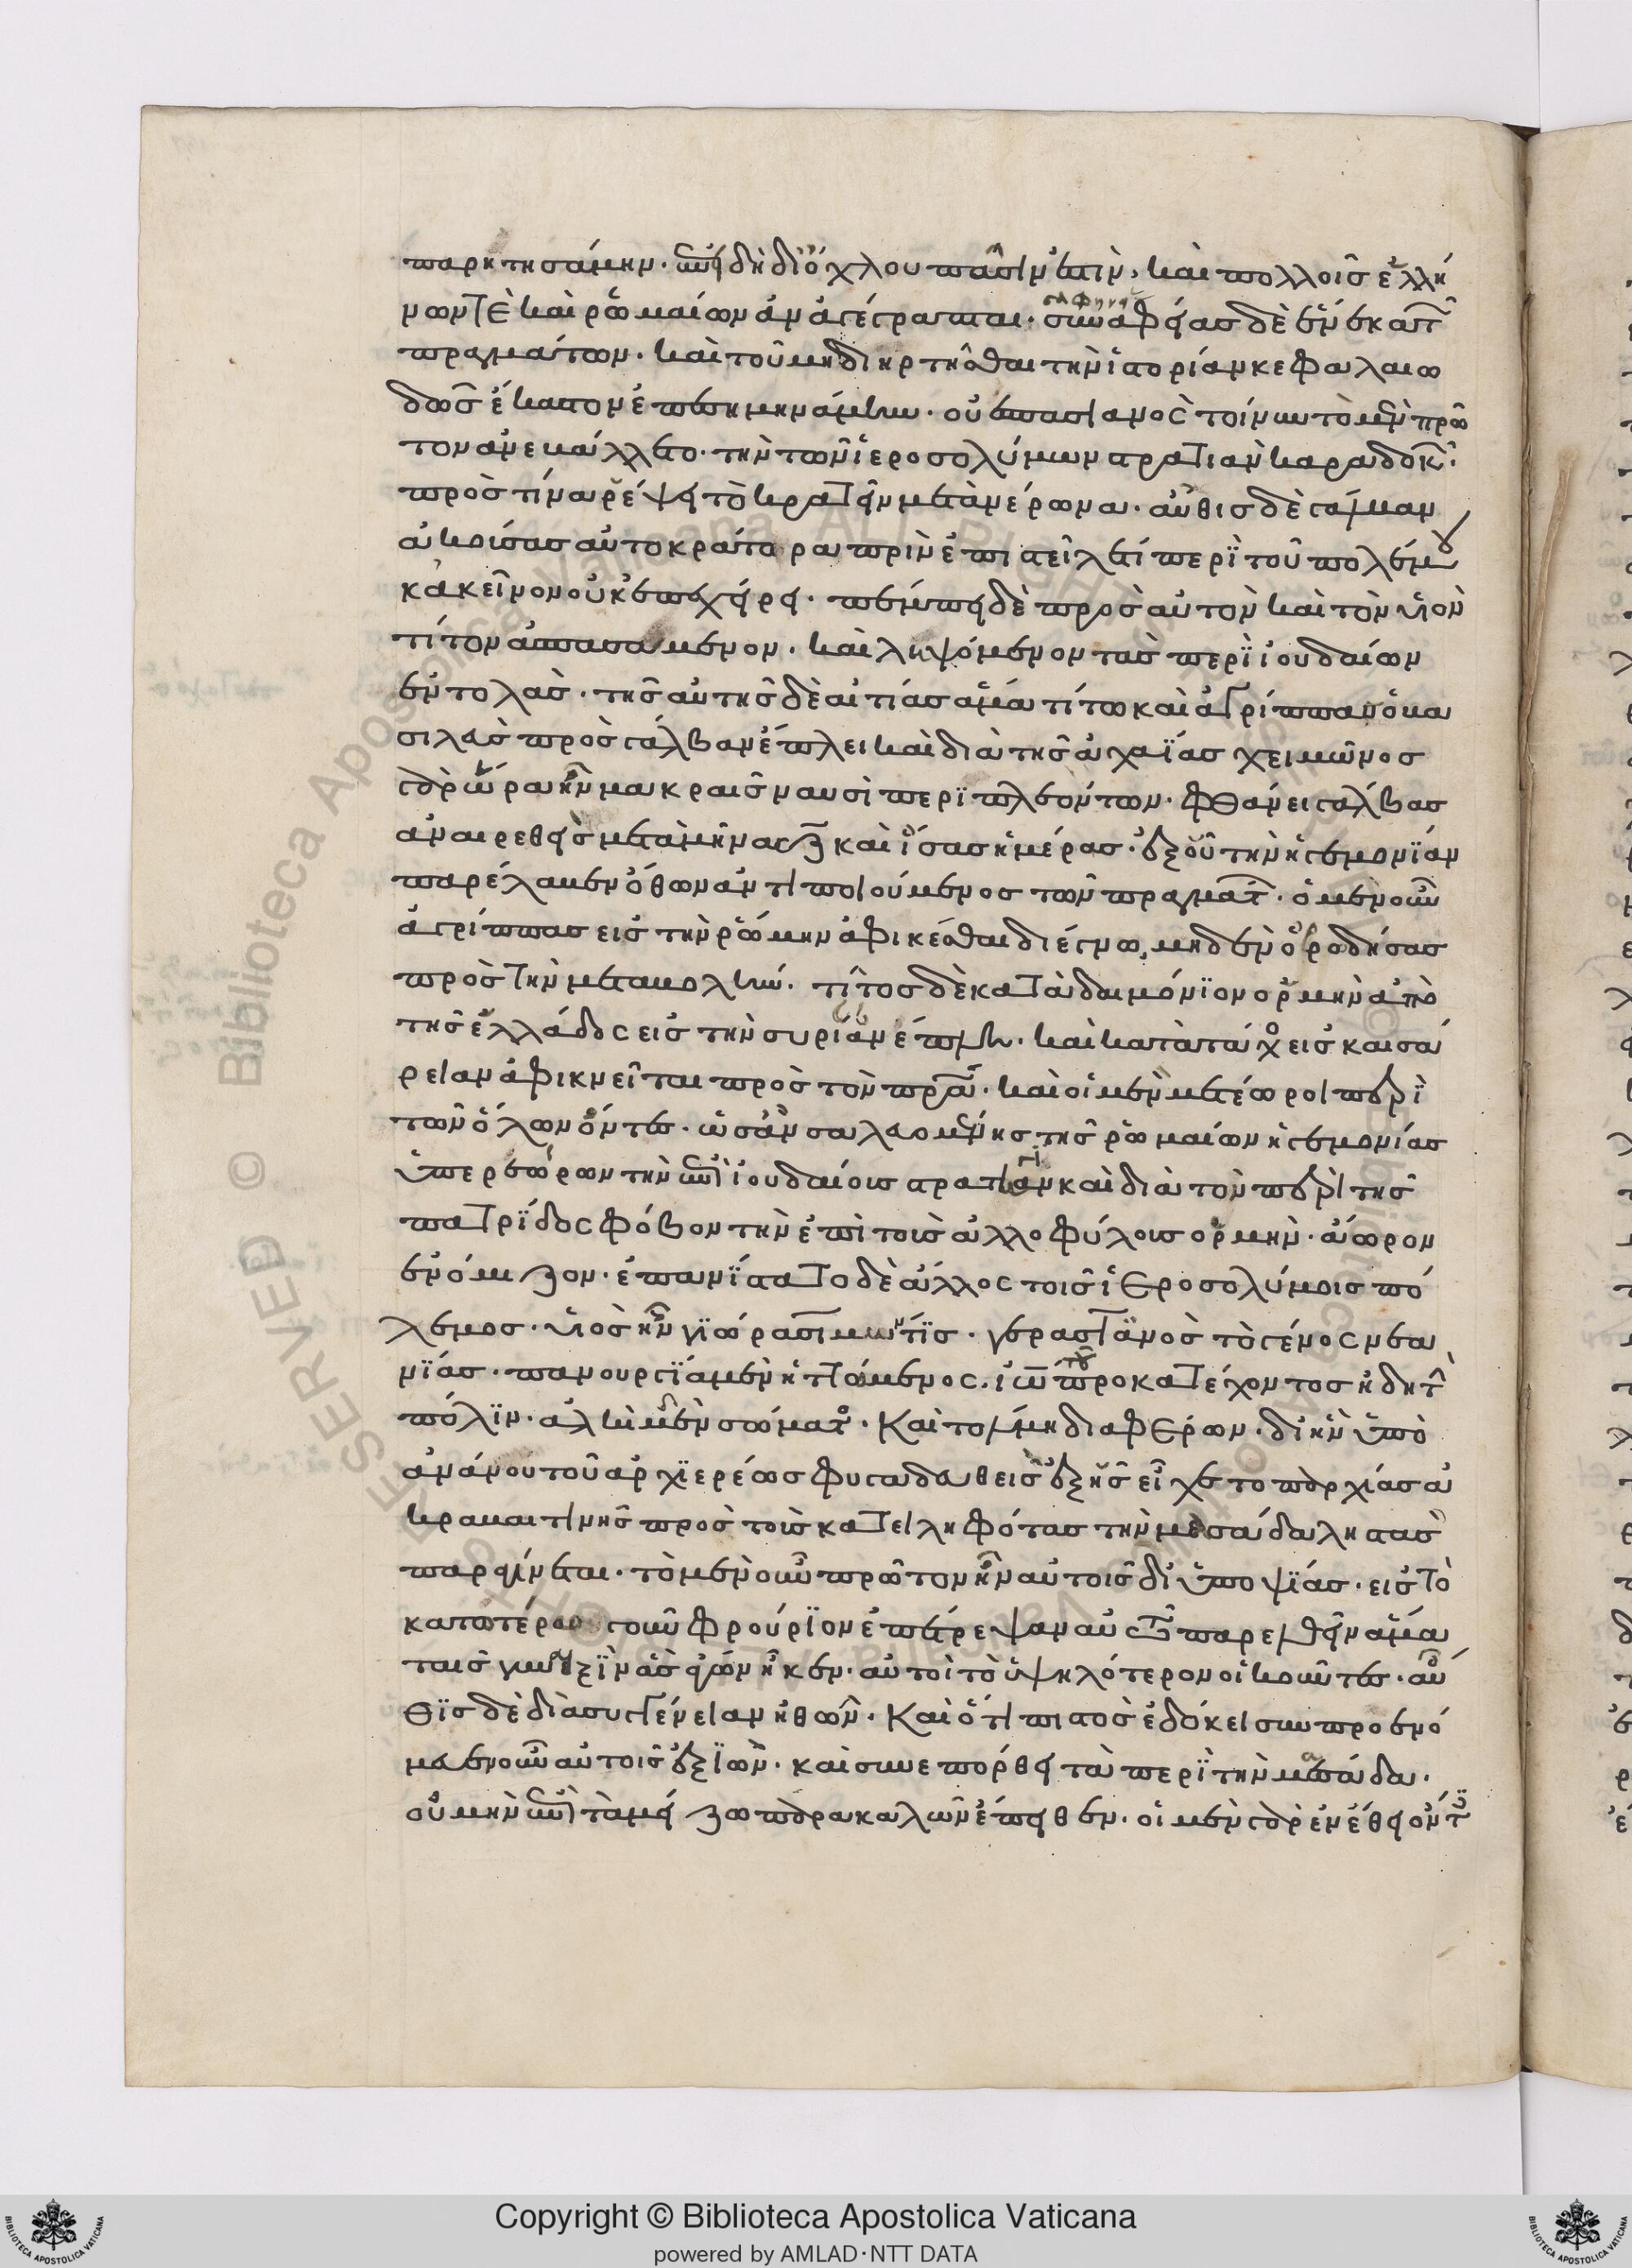 παρητησάμην. ἐπειδὴ δι' ὄχλου πᾶσίν ἐστιν, καὶ πολλοῖς ἑλλή
νων τὲ καὶ ῥωμαίων ἀναγέγραπται. συναφείας δὲ ἕνεκα τῶν
πραγμάτων. καὶ τοῦ μὴ διηρτῆσθαι τὴν ἱστορίαν κεφαλαιω
δῶς ἕκαστον ἐπισημηνάμην. οὐεσπασιανὸς τοίνυν τὸ μὲν πρῶ
τον ἀνεβάλλετο. τὴν τῶν ἱεροσολύμων στρατιὰν καραδοκῶν.
πρὸς τίνα ῥέψει τὸ κρατεῖν μετὰ νέρωνα. αὖθις δὲ γάλβαν
ἀκούσας αὐτοκράτορα πρὶν ἐπιστεῖλαί τι περὶ τοῦ πολέμου
κἀκεῖνον οὐκ ἐπεχείρει. πέμπει δὲ πρὸς αὐτὸν καὶ τὸν υἱὸν
τίτον ἀσπασάμενον. καὶ ληψόμενον τὰς περὶ ἰουδαίων
ἐντολὰς. τῆς αὐτῆς δὲ αἰτίας ἅμα τίτω καὶ ἀγρίππας ὁ βα
σιλεὺς πρὸς γάλβαν ἔπλει καὶ διὰ τῆς ἀχαΐας χειμῶνος
γὰρ ὥρα ἦν μακραῖς ναυσὶ περιπλεόντων. φθάνει γάλβας
ἀναιρεθεὶς μετὰ μῆνας ζ καὶ ἴσας ἡμέρας. ἐξ οὗ τὴν ἡγεμονίαν
παρέλαβεν ὄθων ἀντιποιούμενος τῶν πραγμάτων. ὁ μὲν οὖν
ἀγρίππας εἰς τὴν ῥώμην ἀφικέσθαι διέγνω, μηδὲν ὀρρωδήσας
πρὸς τὴν μεταβολήν. τίτος δὲ κατὰ δαιμόνιον ὁρμὴν ἀπὸ
τῆς ἑλλάδος εἰς τὴν συρίαν ἔπλει. καὶ κατὰ τάχος εἰς καισά
ρειαν ἀφικνεῖται πρὸς τὸν πατέρα. καὶ οἱ μὲν μετέωροι περὶ
τῶν ὅλων ὄντες. ὡσὰν σαλευομένης τῆς ῥωμαίων ἡγεμονίας
ὑπερεώρων τὴν ἐπὶ ἰουδαίοις στρατιὰν καὶ διὰ τὸν περὶ τῆς
πατρίδος φόβον τὴν ἐπὶ τοῖς ἀλλοφύλοις ὁρμὴν. ἄωρον
ἐνόμιζον. ἐπανίστατο δὲ ἄλλος τοῖς ἱεροσολύμοις πό
λεμος. υἱὸς ἦν γιώρα σίμων τίς. γερασιανὸς τὸ γένος νεα
νίας. πανουργία μὲν ἡττώμενος. ἰωάννου τοῦ προκατέχοντος ἤδη τὴν
πόλιν. ἀλκῆ μὲν σώματος. καὶ τόλμη διαφέρων. δι' ἣν ὑπὸ
ἀνάνου τοῦ ἀρχιερέως φυγαδευθεὶς ἐξ ἧς εἶχε τοπαρχίας ἀ
κραβατινῆς πρὸς τοὺς κατειληφότας τὴν μεσάδα ληστὰς
παραγίνεται. τὸ μὲν οὖν πρῶτον ἦν αὐτοῖς δι' ὑποψίας. εἰς τὸ
κατωτέρω γοῦν φρούριον ἐπέτρεψαν αὐτῶ παρελθεῖν ἅμα
ταῖς γυναιξὶν ἃς ἄγων ἧκεν. αὐτοὶ τὸ ὑψηλότερον οἰκοῦντες. αὖ
θις δὲ διὰ συγγένειαν ἠθῶν. καὶ ὅτι πιστὸς ἐδόκει συμπροενό
μευεν οὖν αὐτοῖς ἐξιῶν. καὶ συνεπόρθει τὰ περὶ τὴν μεσάδα.
οὐ μὴν ἐπὶ τὰ μείζω παρακαλῶν ἔπειθεν. οἱ μὲν γὰρ ἐν ἔθει ὄντες
Copyright © Biblioteca Apostolica Vaticana
powered by AMLAD·NTT DATA